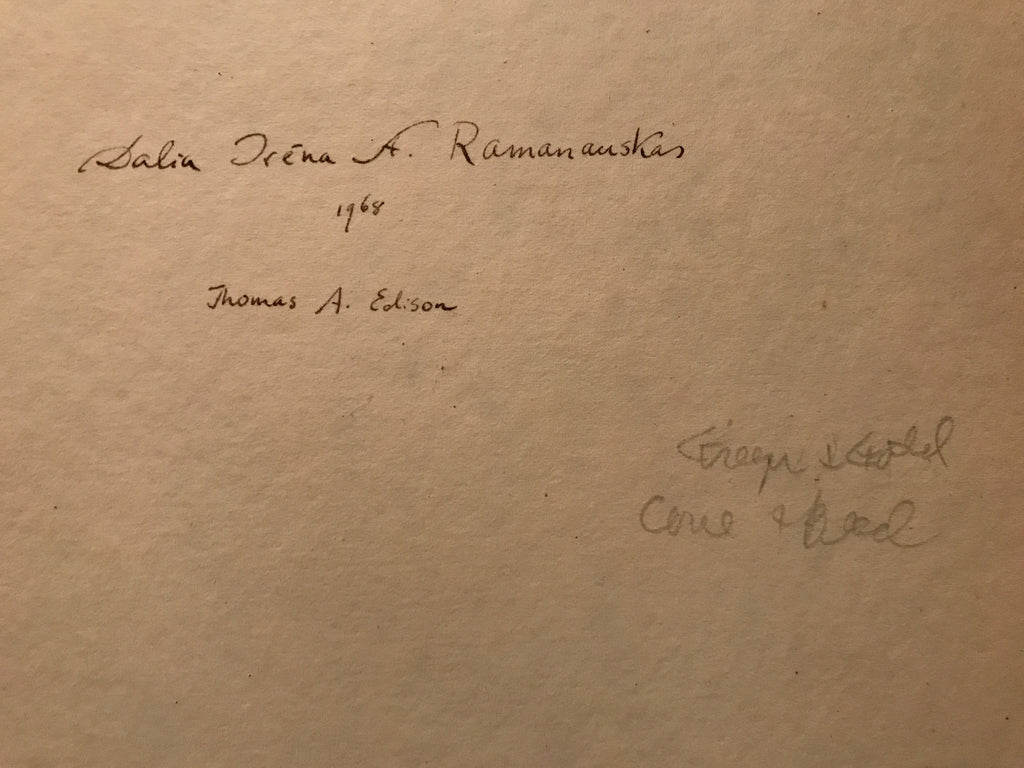 Dalia Irēna A. Ramanauskas
1968
Thomas A. Edison
& Gold
Cove & Bead